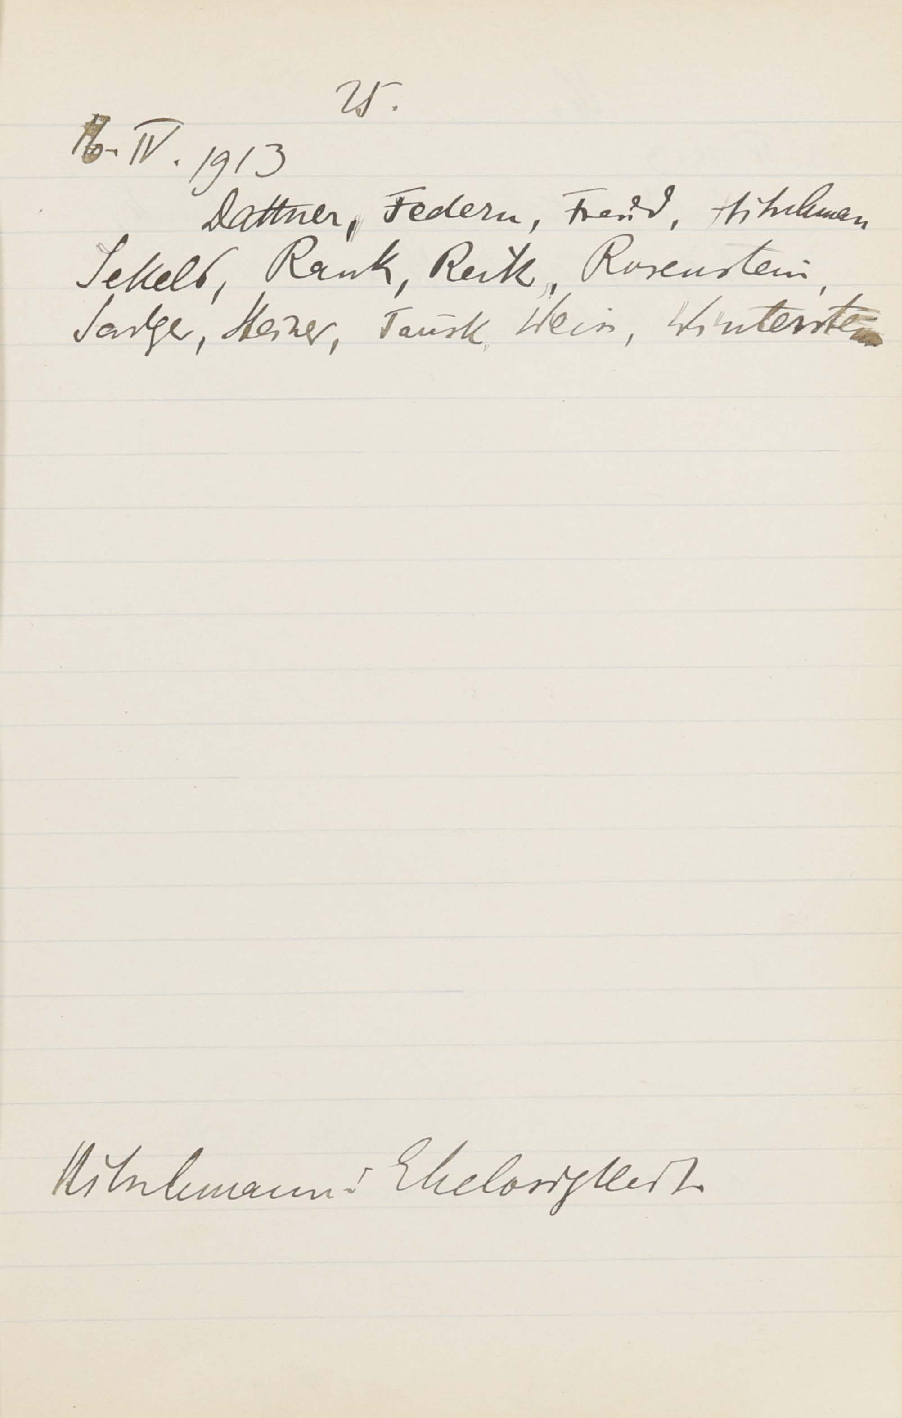 25.
16. IV. 1913
Dattner, Federn, Freud, Hitschman
Jekels, Rank, Reik, Rosenstein,
Sadger, Steiner, Tausk, Weiss, Winterstein
Hitschmann: Ehelosigkeit.